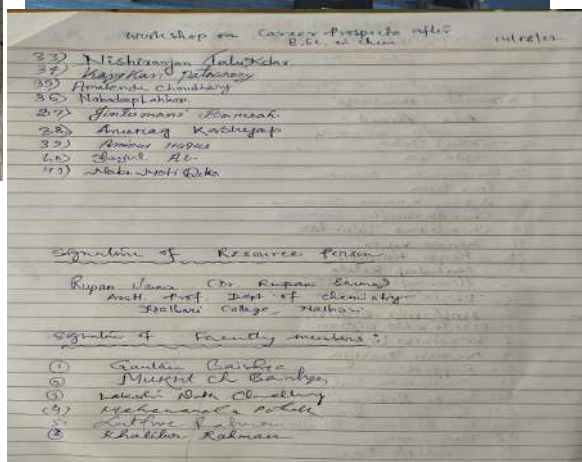 Workshop on Career Prospects after
B.Sc. in Chem
33) Nishiranjan Talukdar
34) Kangkan Patowary
35) Amalendu Choudhury
36) Nabadeep Lahkar
37) Jintumani Barmah
38) Anurag Kashyap
39) Aminur Hoque
40)
41) Naba Jyoti Deka
Signature of Resource Person
Rupan
Asstt. Prof. Dept of Chemistry
Nalbari College, Nalbari
Signature of Faculty members:
① Gautam Baishya
② Mukut Ch Baishya
③ Nath Choudhury
(4)
5. Rahman
⑥ Khalilur Rahman